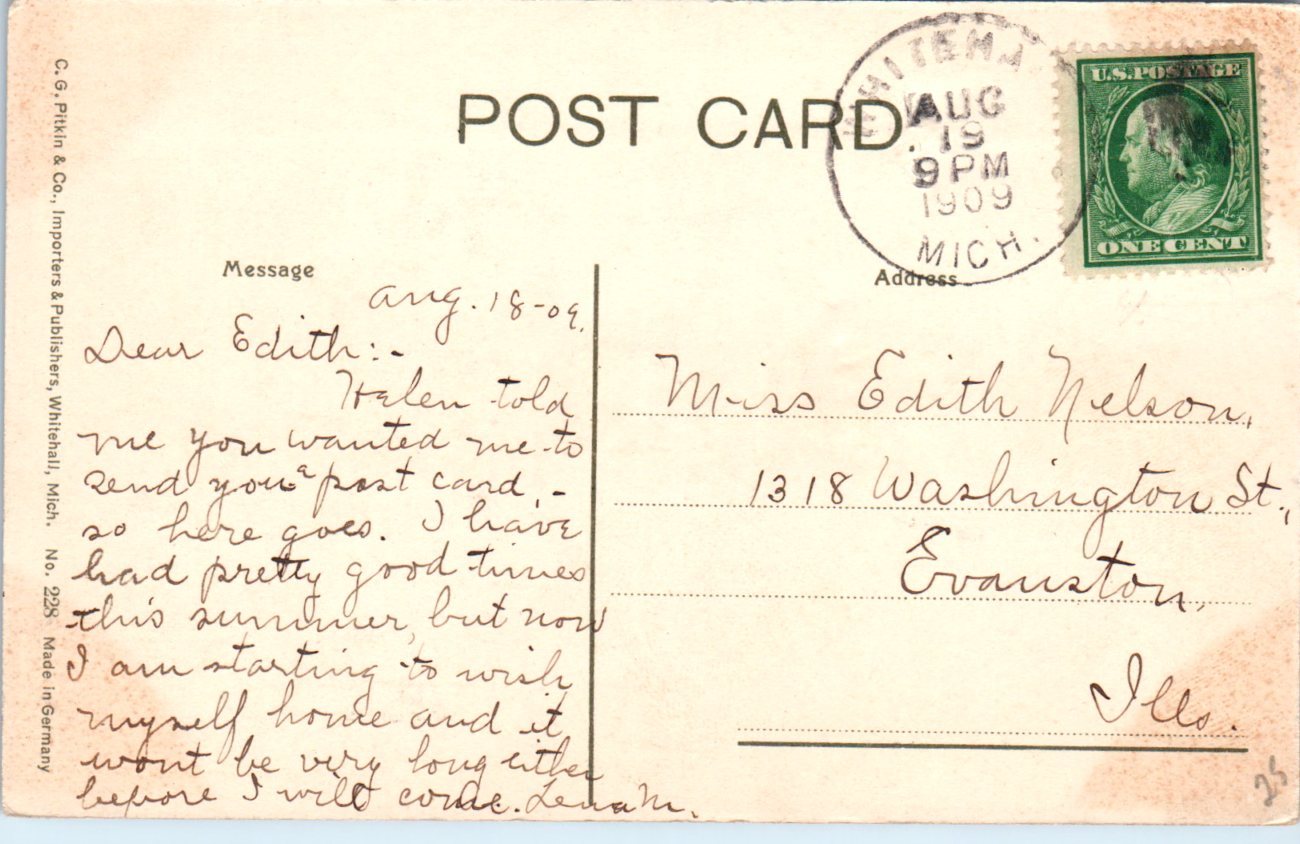 POST CARD
WHITEHA
AUG
19
9 PM
1909
MICH.
U.S. POSTAGE
ONE CENT
Message
Address
Aug. 18-09.
Dear Edith:-
Helen told
me you wanted me to
send you a post card, -
so here goes. I have
had pretty good times
this summer, but now
I am starting to wish
myself home and it
wont be very long either
before I will come. Lena M.
Miss Edith Nelson,
1318 Washington St.,
Evanston,
Ills.
C. G. Pitkin & Co., Importers & Publishers, Whitehall, Mich. No. 228 Made in Germany
25